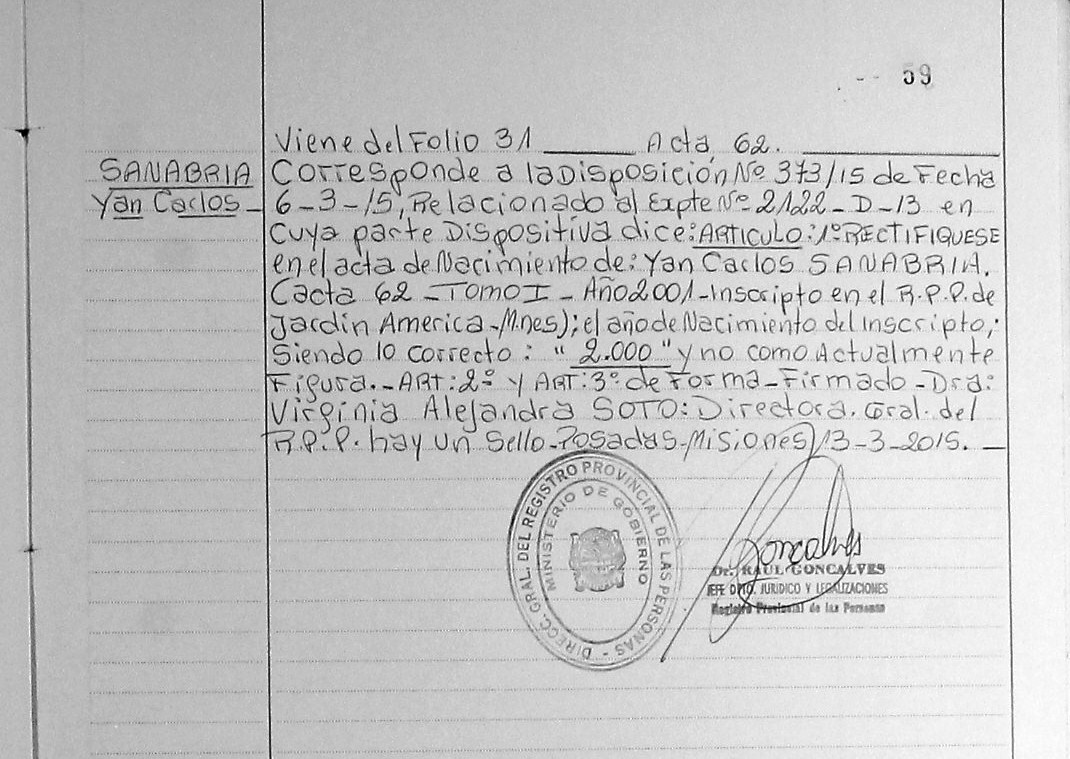 -- 59
Viene del Folio 31 ___ Acta 62. ___
SANABRIA
Yan Carlos_
Corresponde a la Disposición Nº 373/15 de Fecha
6-3-15, Relacionado al Expte Nº 2122-D-13 en
Cuya parte Dispositiva dice: ARTICULO: 1º RECTIFIQUESE
en el acta de Nacimiento de: Yan Carlos SANABRIA.
Cacta 62 - TOMO I - Año 2001 - Inscripto en el R.P.P. de
Jardin America - Mnes); el año de Nacimiento del inscripto,:
Siendo lo correcto: "2.000" y no como Actualmente
Figura.- ART: 2º y ART: 3º de Forma - Firmado - Dra:
Virginia Alejandra SOTO: Directora. Gral. del
R.P.P. hay un Sello - Posadas - Misiones) 13-3-2015. _
DIRECC. GRAL. DEL REGISTRO PROVINCIAL DE LAS PERSONAS -
MINISTERIO DE GOBIERNO
Goncalves
Dr. RAUL GONCALVES
JEFE DPTO. JURIDICO Y LEGALIZACIONES
Registro Provincial de las Personas